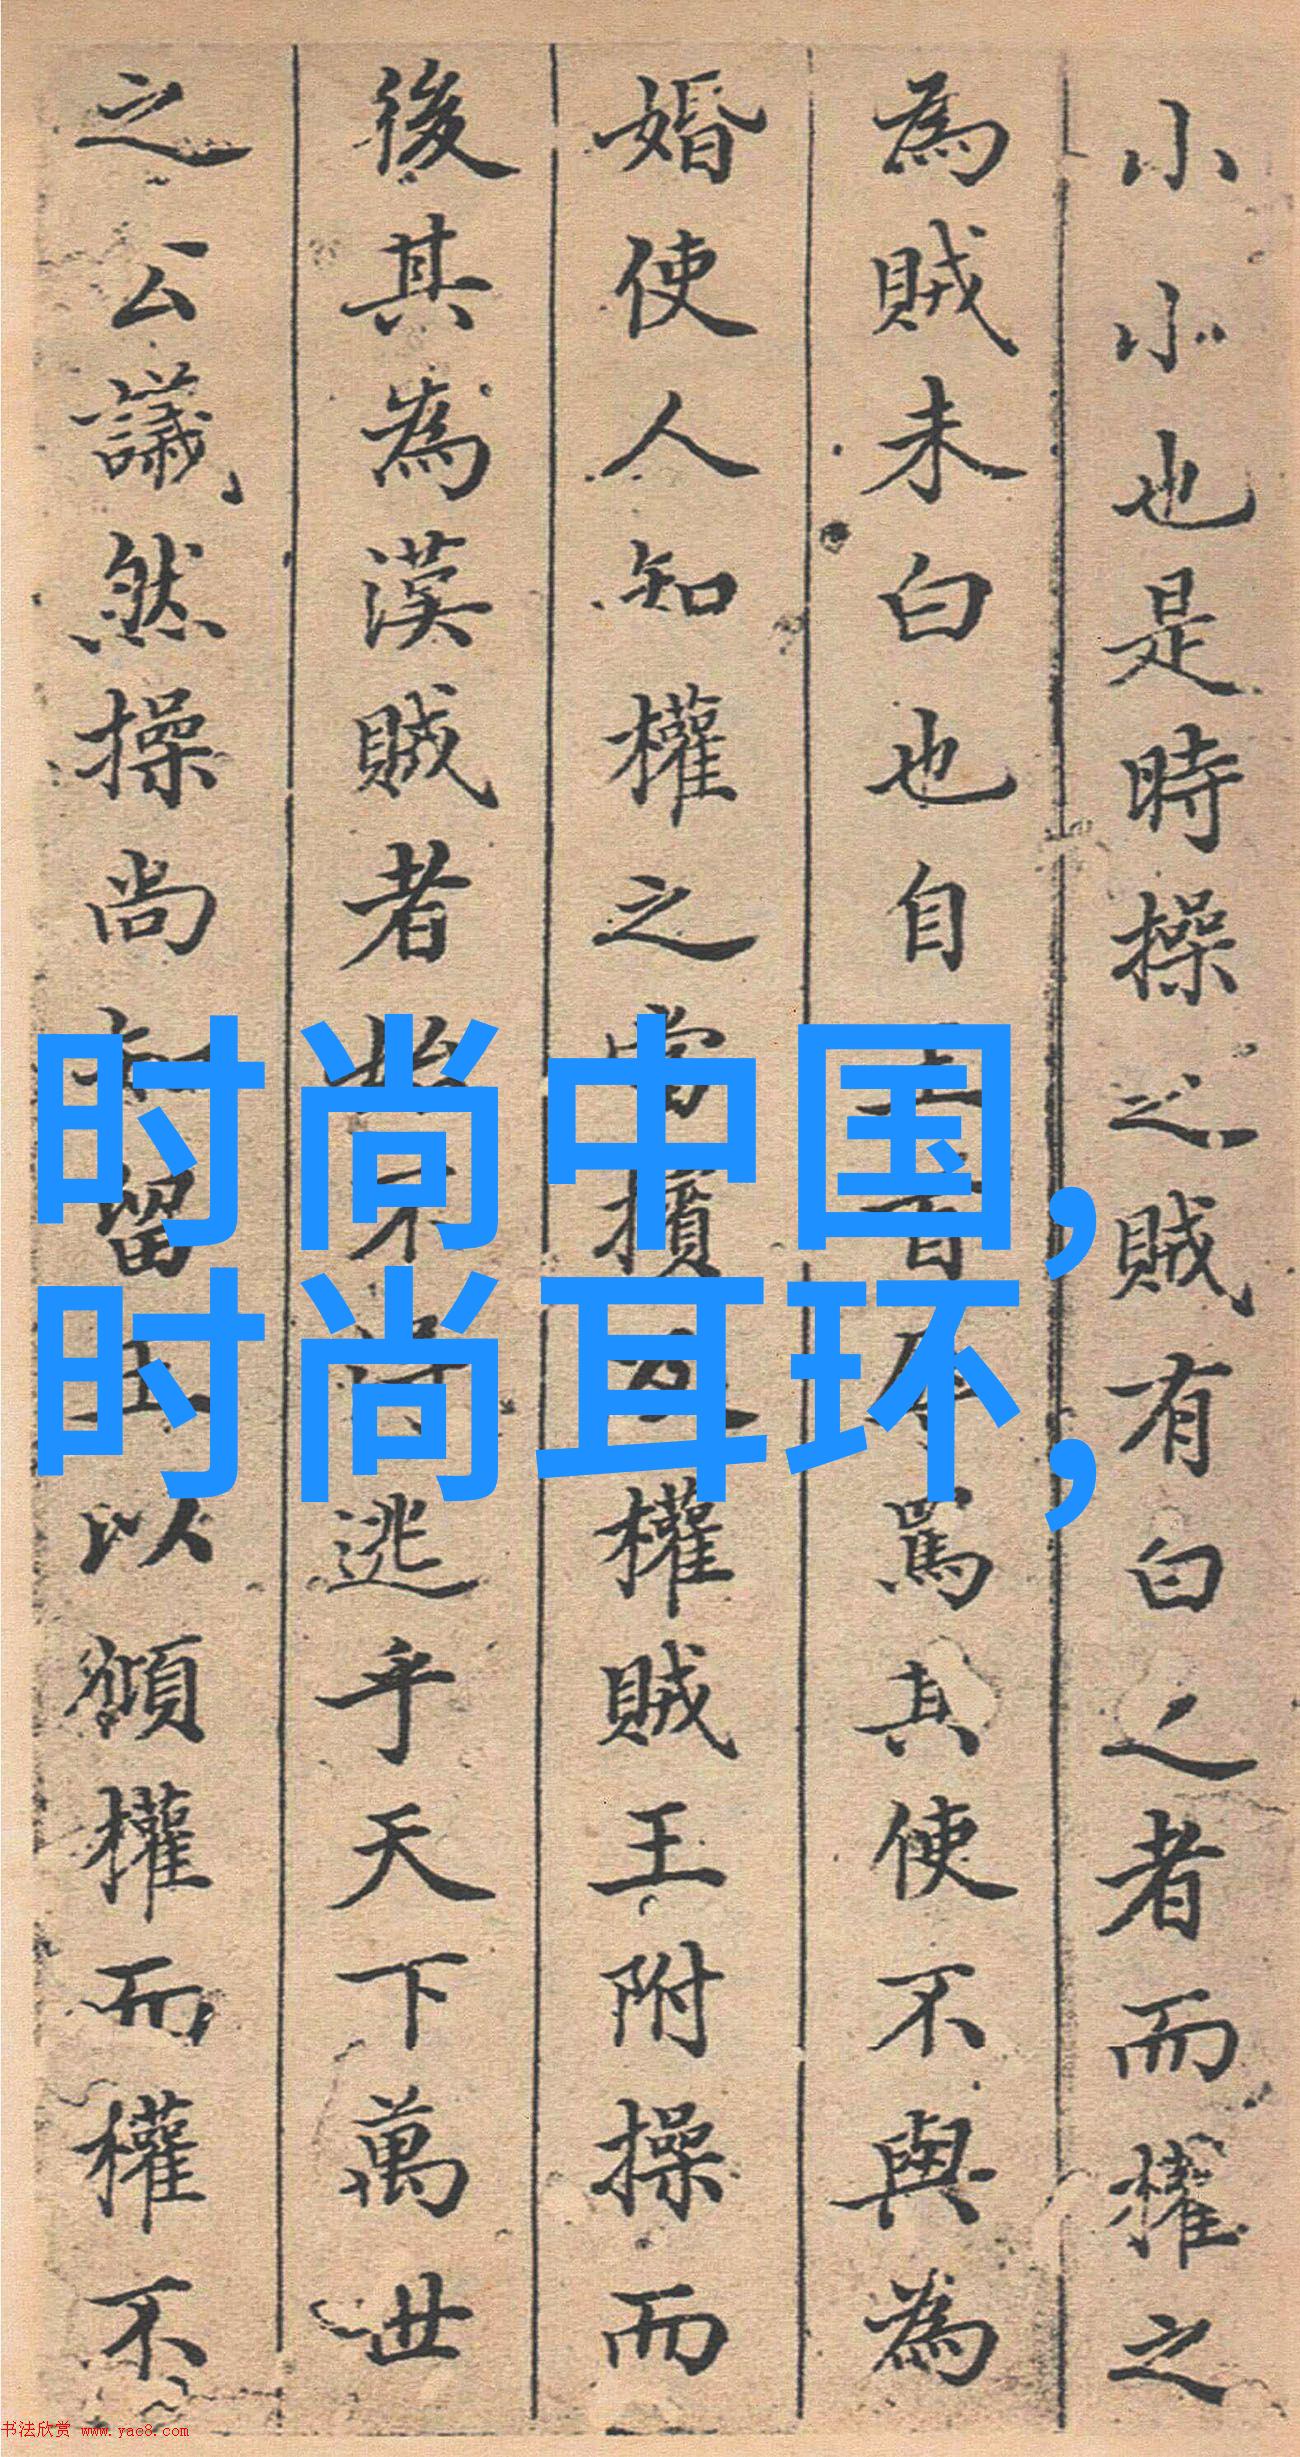 小小也是時操之賊有白之者而權之
為賊未白也自罵其使不與為
婚使人知權之當擯權賊王附操而
後其為漢賊者始不逃乎天下萬世
之公議然操尚留以權而權不
时尚中国,
时尚耳环,
书法欣赏 www.yac8.com